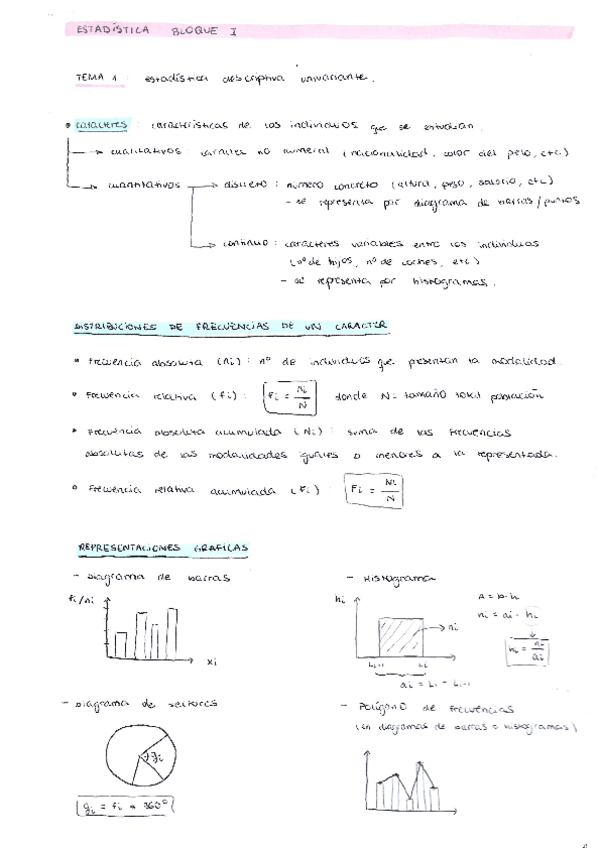 ESTADÍSTICA BLOQUE I
TEMA 1 : estadística descriptiva univariante.
• caracteres : características de los individuos que se estudian.
→ cualitativos : carácter no numeral (nacionalidad, color del pelo, etc)
→ cuantitativos → discreto : número concreto (altura, peso, salario, etc)
- se representa por diagrama de barras/puntos
→ continuo : caracteres variables entre los individuos
(nº de hijos, nº de coches, etc)
- se representa por histogramas.
DISTRIBUCIONES DE FRECUENCIAS DE UN CARACTER
• Frecuencia absoluta (ni) : nº de individuos que presentan la modalidad.
• Frecuencia relativa (fi) : fi = ni / N donde N = tamaño total población
• Frecuencia absoluta acumulada (Ni) : suma de las frecuencias
absolutas de las modalidades iguales o menores a la representada.
• Frecuencia relativa acumulada (Fi) Fi = Ni / N
REPRESENTACIONES GRAFICAS
- Diagrama de barras
fi/ni
xi
- Histograma
hi
ni
Li-1 Li
ai = Li - Li-1
A = b·h
ni = ai · hi
hi = ni / ai
- Diagrama de sectores
gi
gi = fi * 360°
- Polígono de frecuencias
(en diagramas de barras o histogramas)